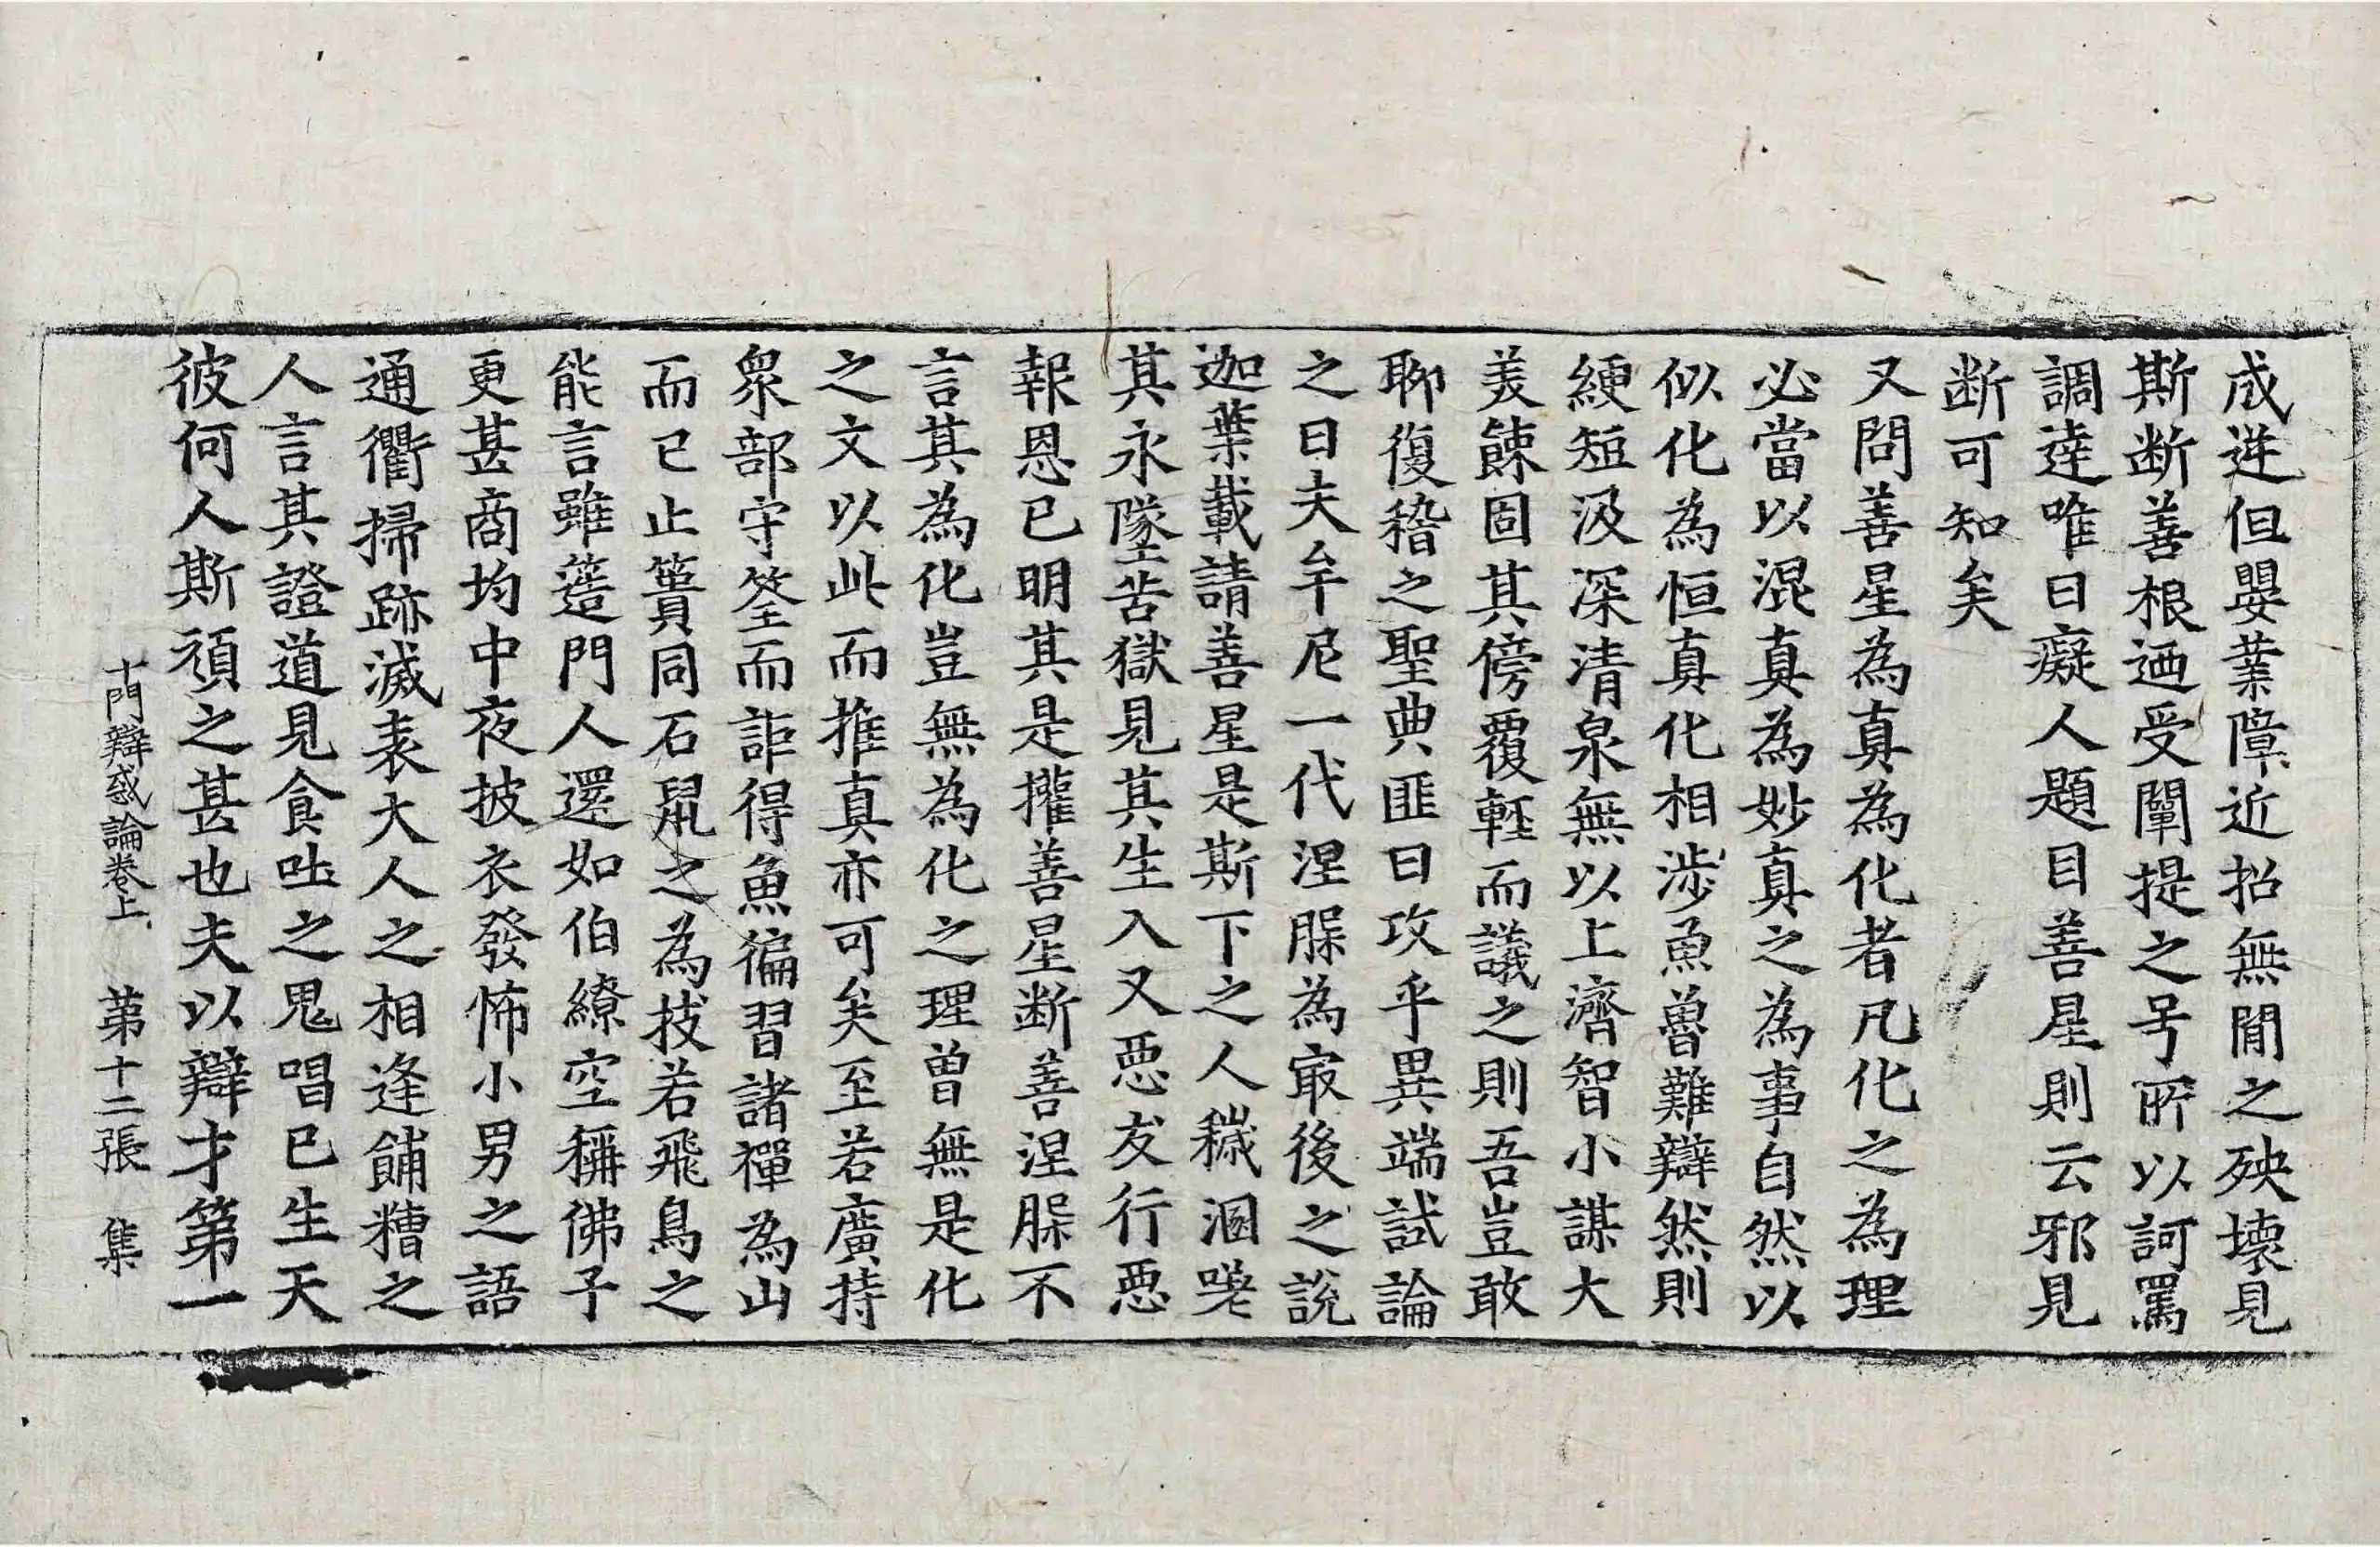 成逆但嬰業障近招無閒之殃壞見
斯断善根迺受闡提之号所以訶罵
調達唯曰癡人題目善星則云邪見
断可知矣
又問善星為真為化者凡化之為理
必當以混真為妙真之為事自然以
似化為恒真化相涉魚魯難辯然則
綆短汲深清泉無以上濟智小謀大
美餗固其傍覆輕而議之則吾豈敢
聊復稽之聖典匪曰攻乎異端試論
之曰夫牟尼一代涅脲為㝡後之說
迦葉載請善星是斯下之人穢溷嘊
其永墜苦獄見其生入又惡友行惡
報恩已明其是攡善星断善涅脲不
言其為化豈無為化之理曾無是化
之文以此而推真亦可矣至若廣持
眾部守筌而詎得魚徧習諸禪為山
而已止簣同石鼠之為技若飛鳥之
能言雖簉門人還如伯繚空稱佛子
更甚商均中夜披衣發怖小男之語
通衢掃跡滅表大人之相逢餔糟之
人言其證道見食吐之鬼唱已生天
彼何人斯頑之甚也夫以辯才第一
十門辯惑論卷上 第十二張 集